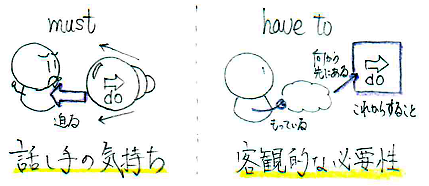 must
do
迫る
話し手の気持ち
have to
何か先にある
do
もっている
これからすること
客観的な必要性